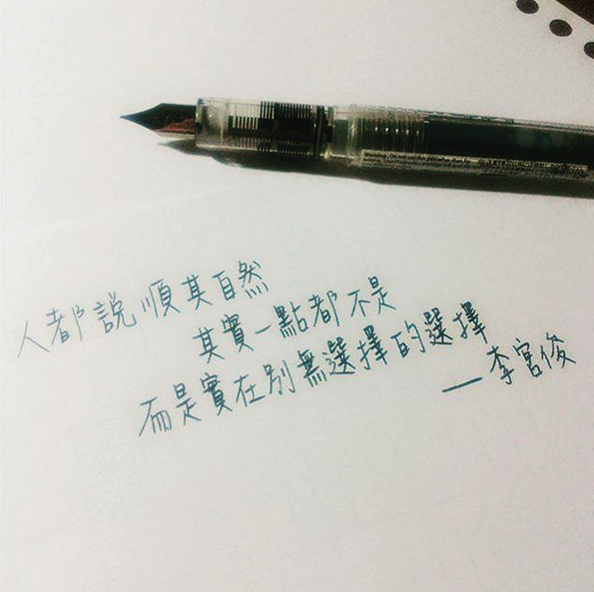 人都說順其自然
其實一點都不是
而是實在別無選擇的選擇
—李宮俊